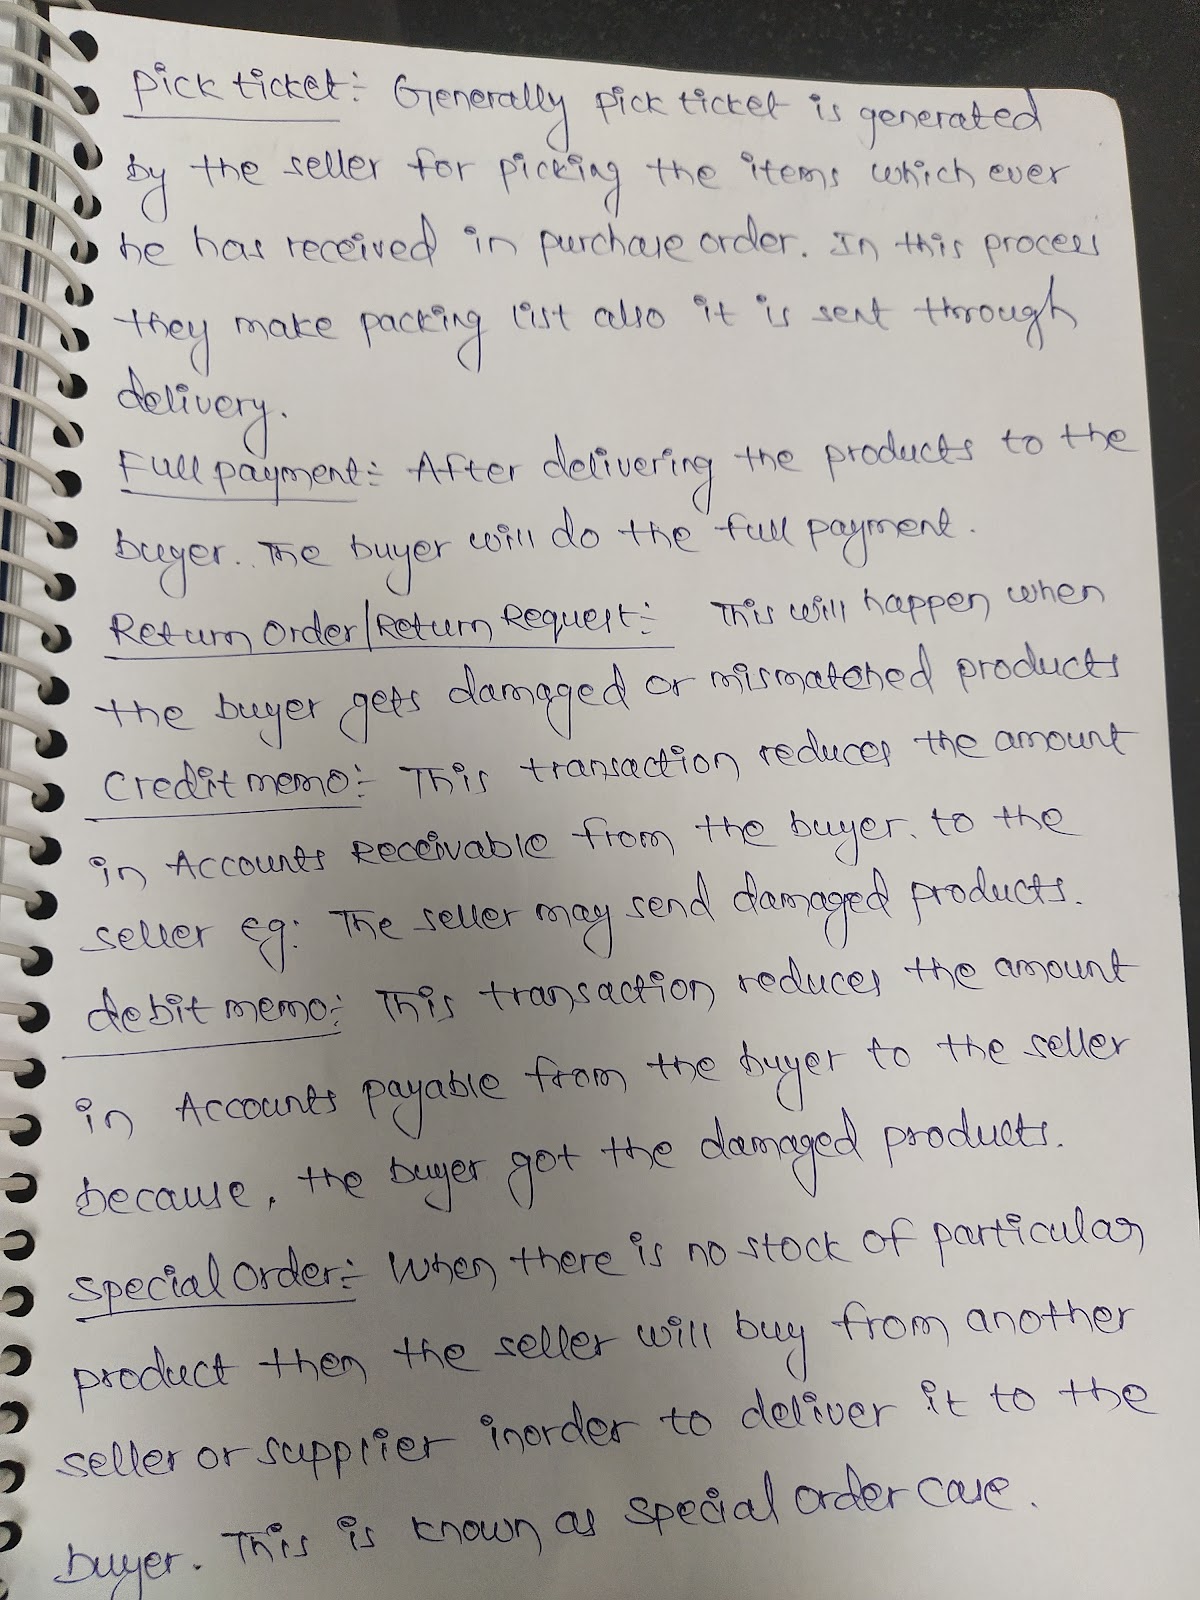 Pick ticket:- Generally pick ticket is generated
by the seller for picking the items which ever
he has received in purchase order. In this process
they make packing list also it is sent through
delivery.
Full payment:- After delivering the products to the
buyer.. The buyer will do the full payment.
Return Order/Return Request:- This will happen when
the buyer gets damaged or mismatched products
Credit memo:- This transaction reduces the amount
in Accounts Receivable from the buyer. to the
seller eg: The seller may send damaged products.
debit memo:- This transaction reduces the amount
in Accounts payable from the buyer to the seller
because, the buyer got the damaged products.
Special Order:- When there is no stock of particular
product then the seller will buy from another
seller or supplier inorder to deliver it to the
buyer. This is known as special order case.